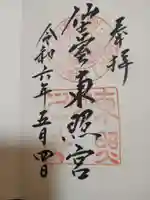 奉拝
仙臺東照宮
令和六年五月四日